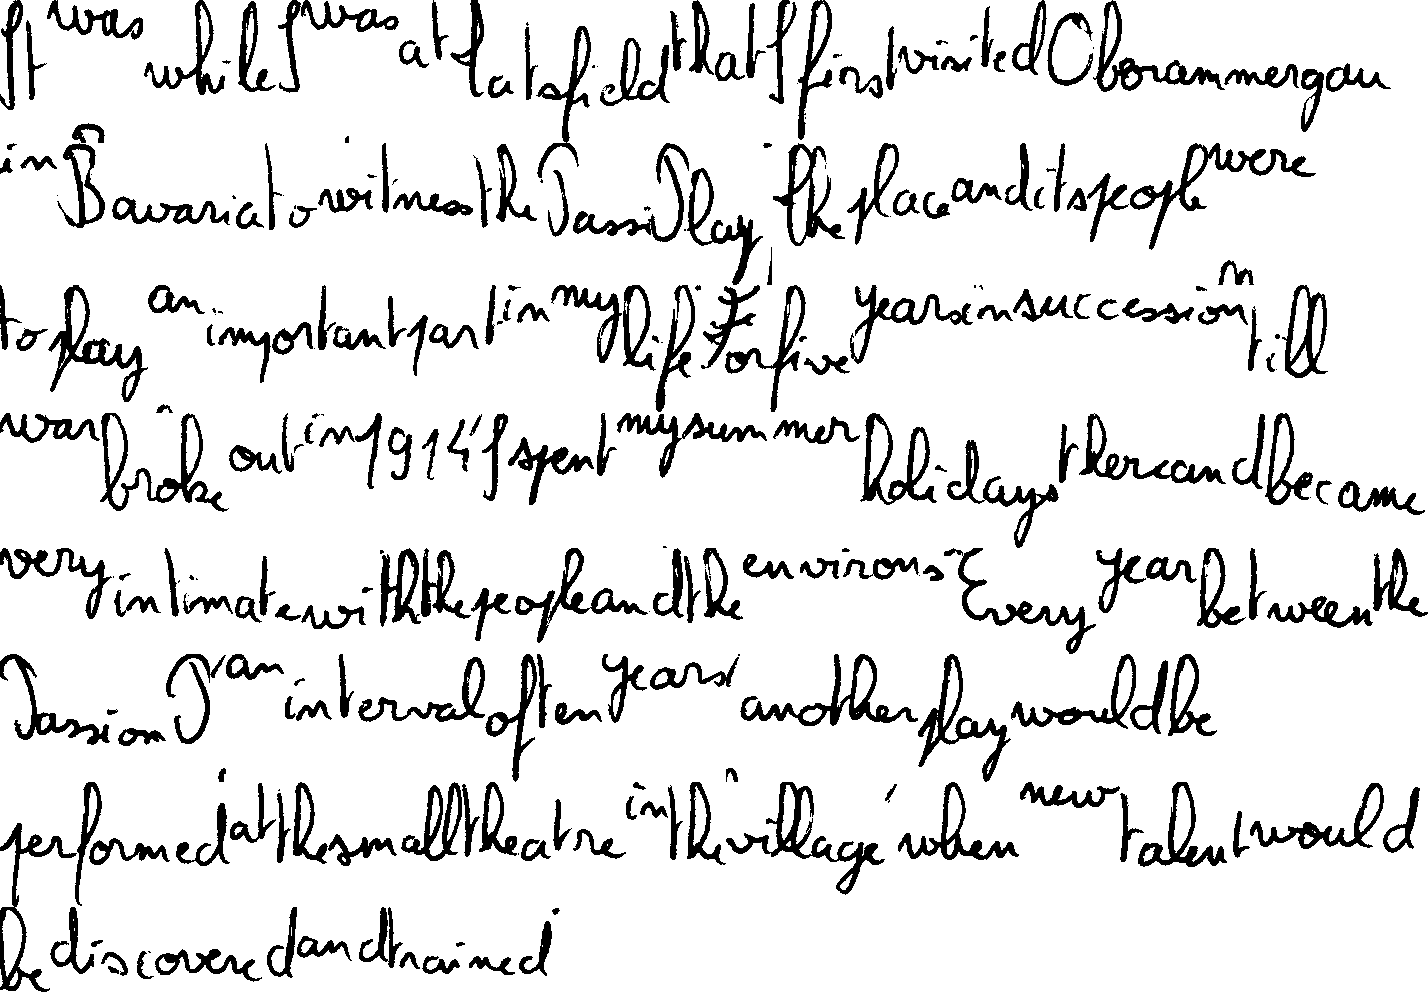 It was while I was at that I first visited Oberammergau
in Bavaria to witness the Passi Play; the place and its people were
to play an important part in my life. For five years in succession till
war broke out in 1914, I spent my summer holidays there and became
very intimate with the people and the environs. Every year between the
Passion P, an interval of ten years, another play would be
performed at the small theatre in the village, when new talent would
be discovered and trained.